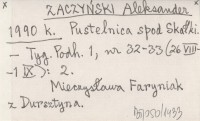 x ZACZYŃSKI Aleksander
1990 k. Pustelnica spod Skałki.
– Tyg. Podh. 1, nr 32–33 (26 VIII
–1 IX): 2.
Mieczysława Faryniak
z Dursztyna.